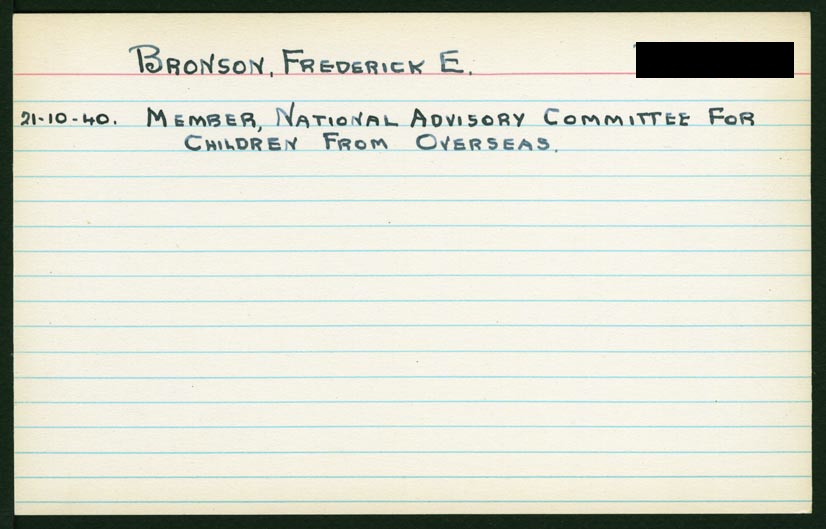 BRONSON, FREDERICK E.
21-10-40. MEMBER, NATIONAL ADVISORY COMMITTEE FOR
CHILDREN FROM OVERSEAS.